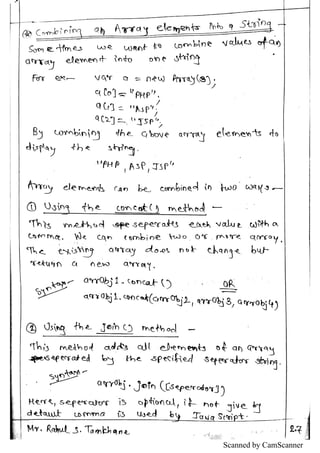 Combining an Array elements into a String –
Sometimes we want to combine values of an
array element into one string
For ex— var a = new Array(3);
a[0] = "PHP",
a[1] = "ASP",
a[2] = "JSP",
By combining the above array elements to
display the string.
"PHP, ASP, JSP"
Array elements can be combined in two ways –
① Using the concat() method –
This method seperates each value with a
comma. We can combine two or more array.
The existing array does not change but
return a new array.
Syntax– arrObj1.concat()
OR
arrObj1.concat(arrObj2, arrObj3, arrObj4)
② Using the Join() method –
This method adds all elements of an array
seperated by the specified seperator string.
Syntax– arrObj.Join([Seperator])
Here, seperator is optional, if not give by
default comma is used by Java Script.
Mr. Rahul S. Tamkhane
27
Scanned by CamScanner